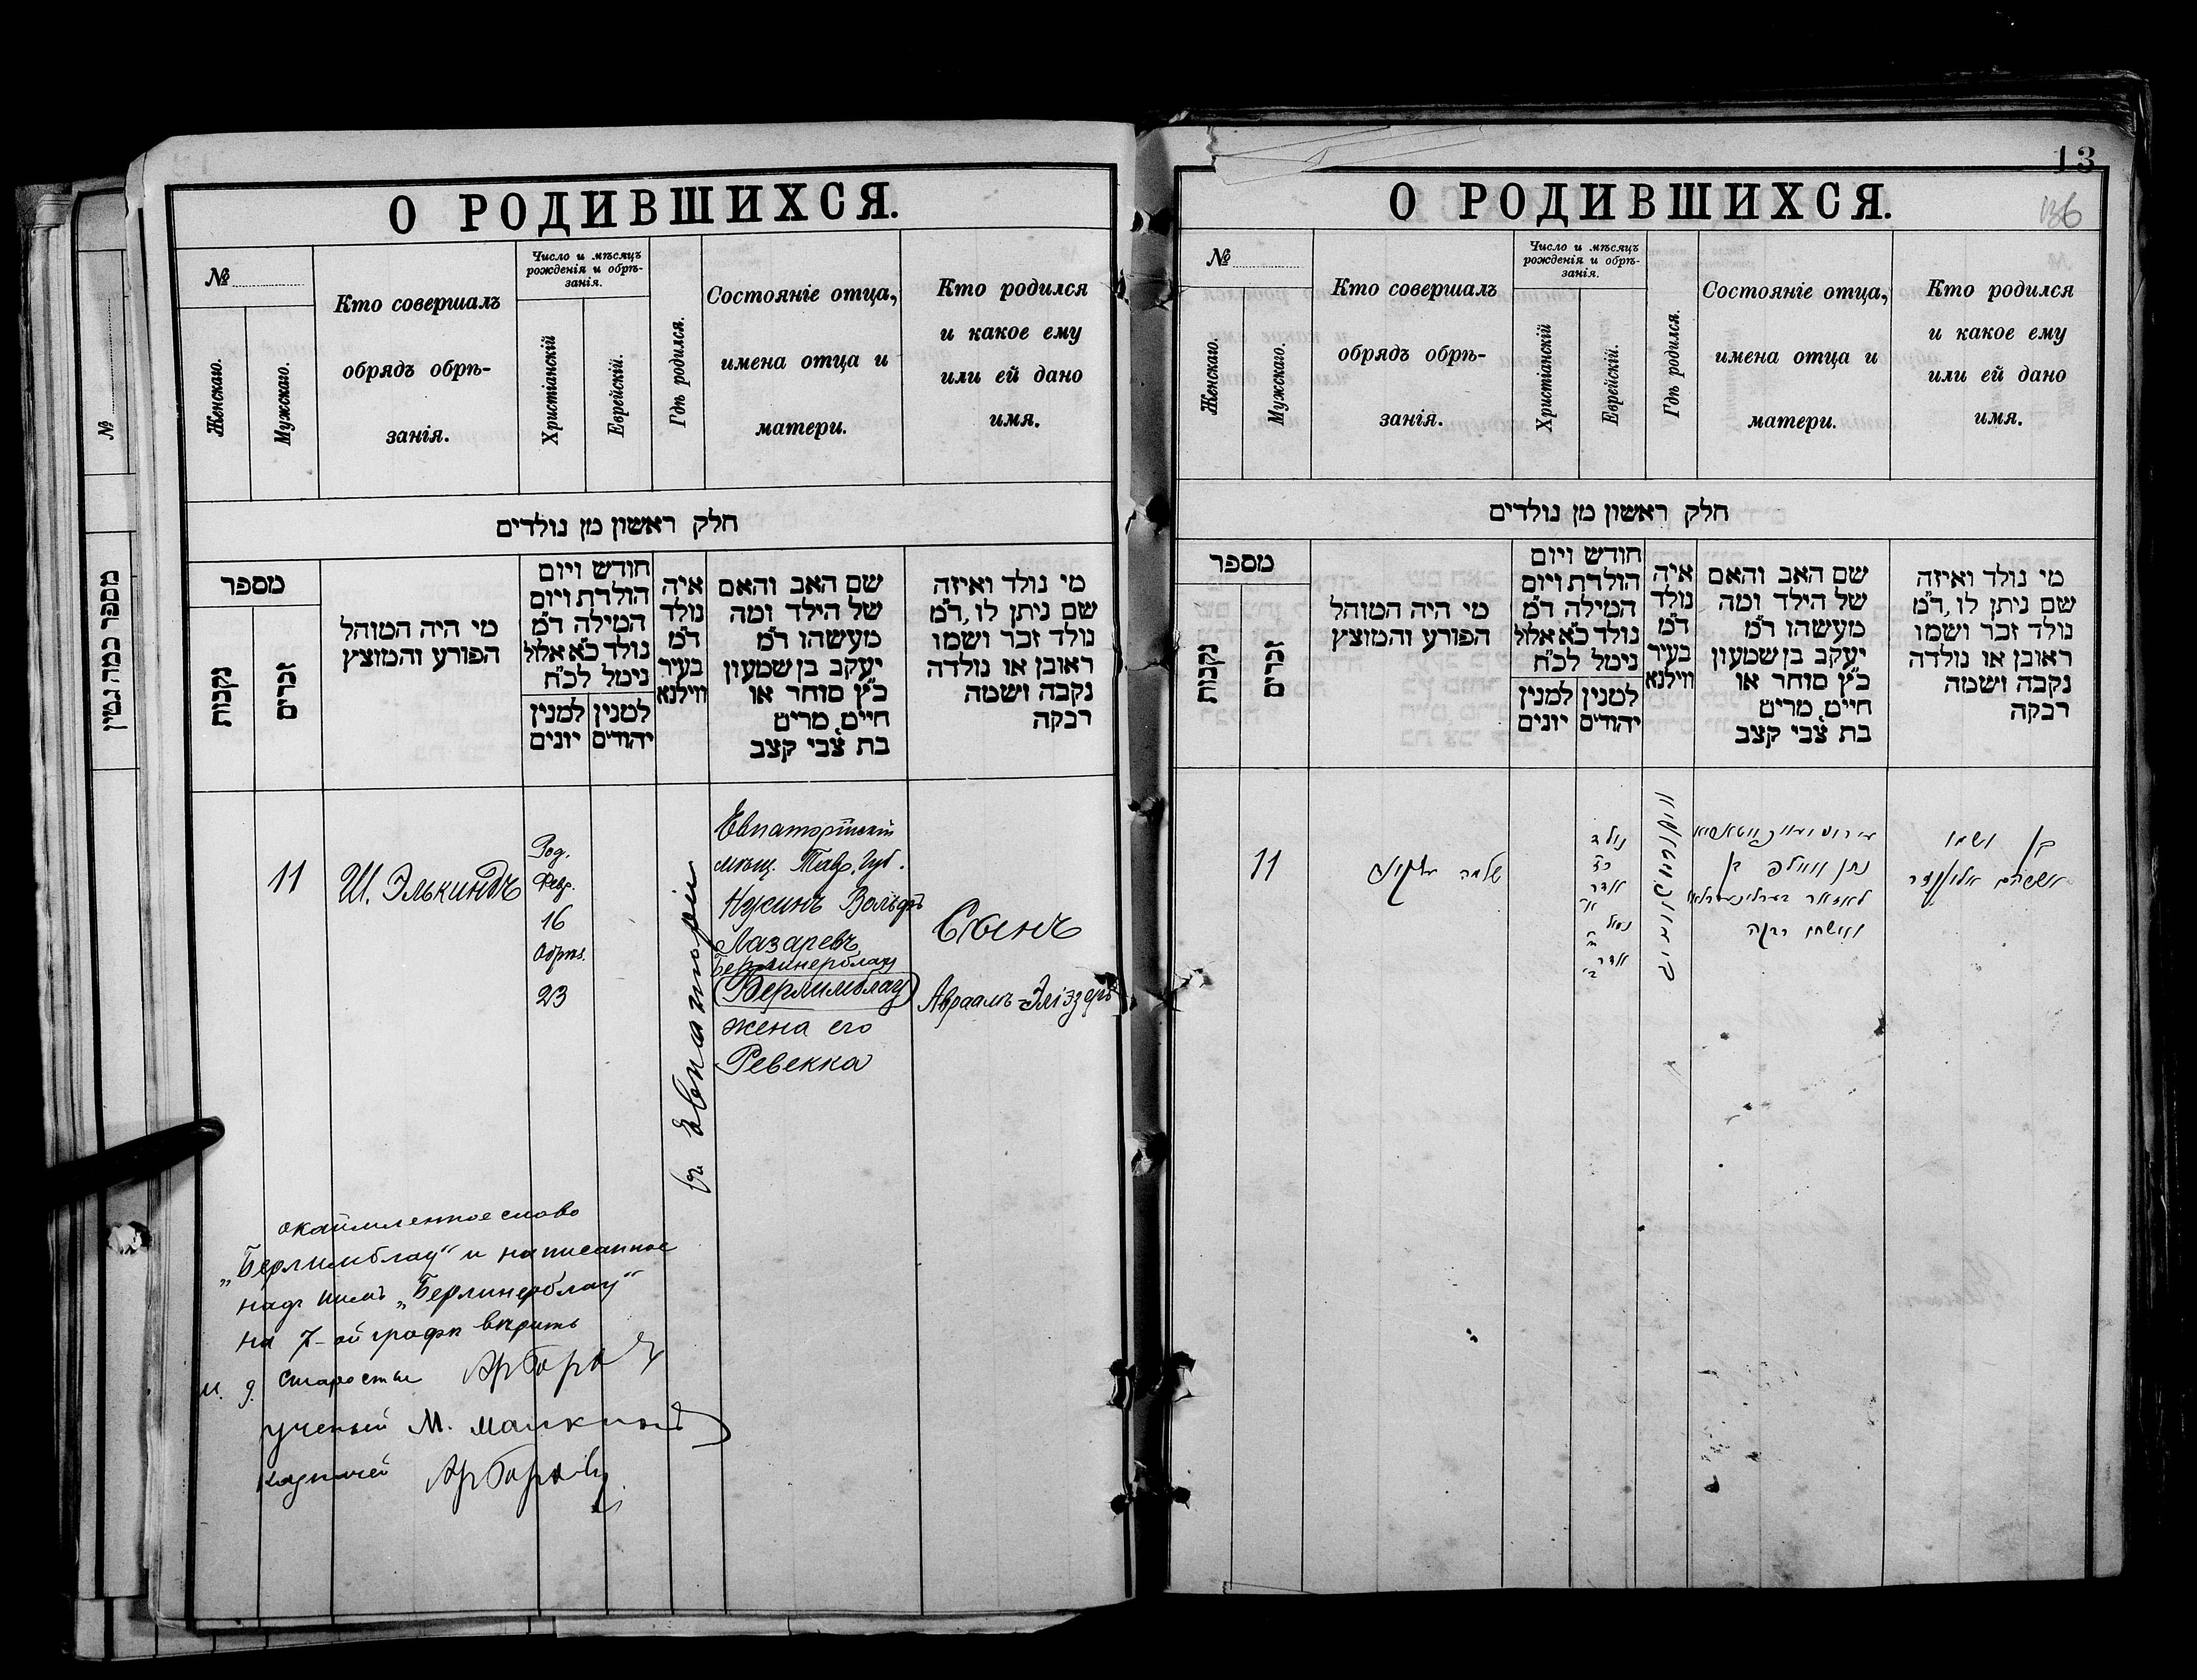 О РОДИВШИХСЯ.
№
Женскаго.
Мужскаго.
Кто совершалъ
обрядъ обрѣ-
занія.
Число и мѣсяцъ
рожденія и обрѣ-
занія.
Христіанскій
Еврейскій.
Гдѣ родился.
Состояніе отца,
имена отца и
матери.
Кто родился
и какое ему
или ей дано
имя.
חלק ראשון מן נולדים
מספר
נקבות
זכרים
מי היה המוהל
הפורע והמוצץ
חודש ויום
הולדת ויום
המילה ד״מ
נולד כ״א אלול
נימל לכ״ח
למנין
יונים
למנין
יהודים
איה
נולד
ד״מ
בעיר
ווילנא
שם האב והאם
של הילד ומה
מעשהו ד״מ
יעקב בן שמעון
כ״ץ סוחר או
חיים, מרים
בת צבי קצב
מי נולד ואיזה
שם ניתן לו, ד״מ
נולד זכר ושמו
ראובן או נולדה
נקבה ושמה
רבקה
11
Ш. Элькиндъ
Род.
Февр.
16
Обрѣз.
23
въ Евпаторіи
Евпаторійскій
мѣщ. Тавр. Губ.
Вольфъ
Лазаревъ
Берлинерблау
(Берлимблау)
жена его
Ревекка
Сынъ
Авраамъ-Эліэзеръ
окаймленное слово
„Берлимблау" и написанное
надъ нимъ „Берлинерблау"
на 7-ой графѣ вѣрить
И. д. Старосты
ученый М.
казначей
№
מספר כמה גטין
13
136
О РОДИВШИХСЯ.
№
Женскаго.
Мужскаго.
Кто совершалъ
обрядъ обрѣ-
занія.
Число и мѣсяцъ
рожденія и обрѣ-
занія.
Христіанскій
Еврейскій.
Гдѣ родился.
Состояніе отца,
имена отца и
матери.
Кто родился
и какое ему
или ей дано
имя.
חלק ראשון מן נולדים
מספר
נקבות
זכרים
מי היה המוהל
הפורע והמוצץ
חודש ויום
הולדת ויום
המילה ד״מ
נולד כ״א אלול
נימל לכ״ח
למנין
יונים
למנין
יהודים
איה
נולד
ד״מ
בעיר
ווילנא
שם האב והאם
של הילד ומה
מעשהו ד״מ
יעקב בן שמעון
כ״ץ סוחר או
חיים, מרים
בת צבי קצב
מי נולד ואיזה
שם ניתן לו, ד״מ
נולד זכר ושמו
ראובן או נולדה
נקבה ושמה
רבקה
11
שלמה
נולד
אדר
נמול
אדר
נתן וואלף בן
ואשתו רבקה
בן ושמו